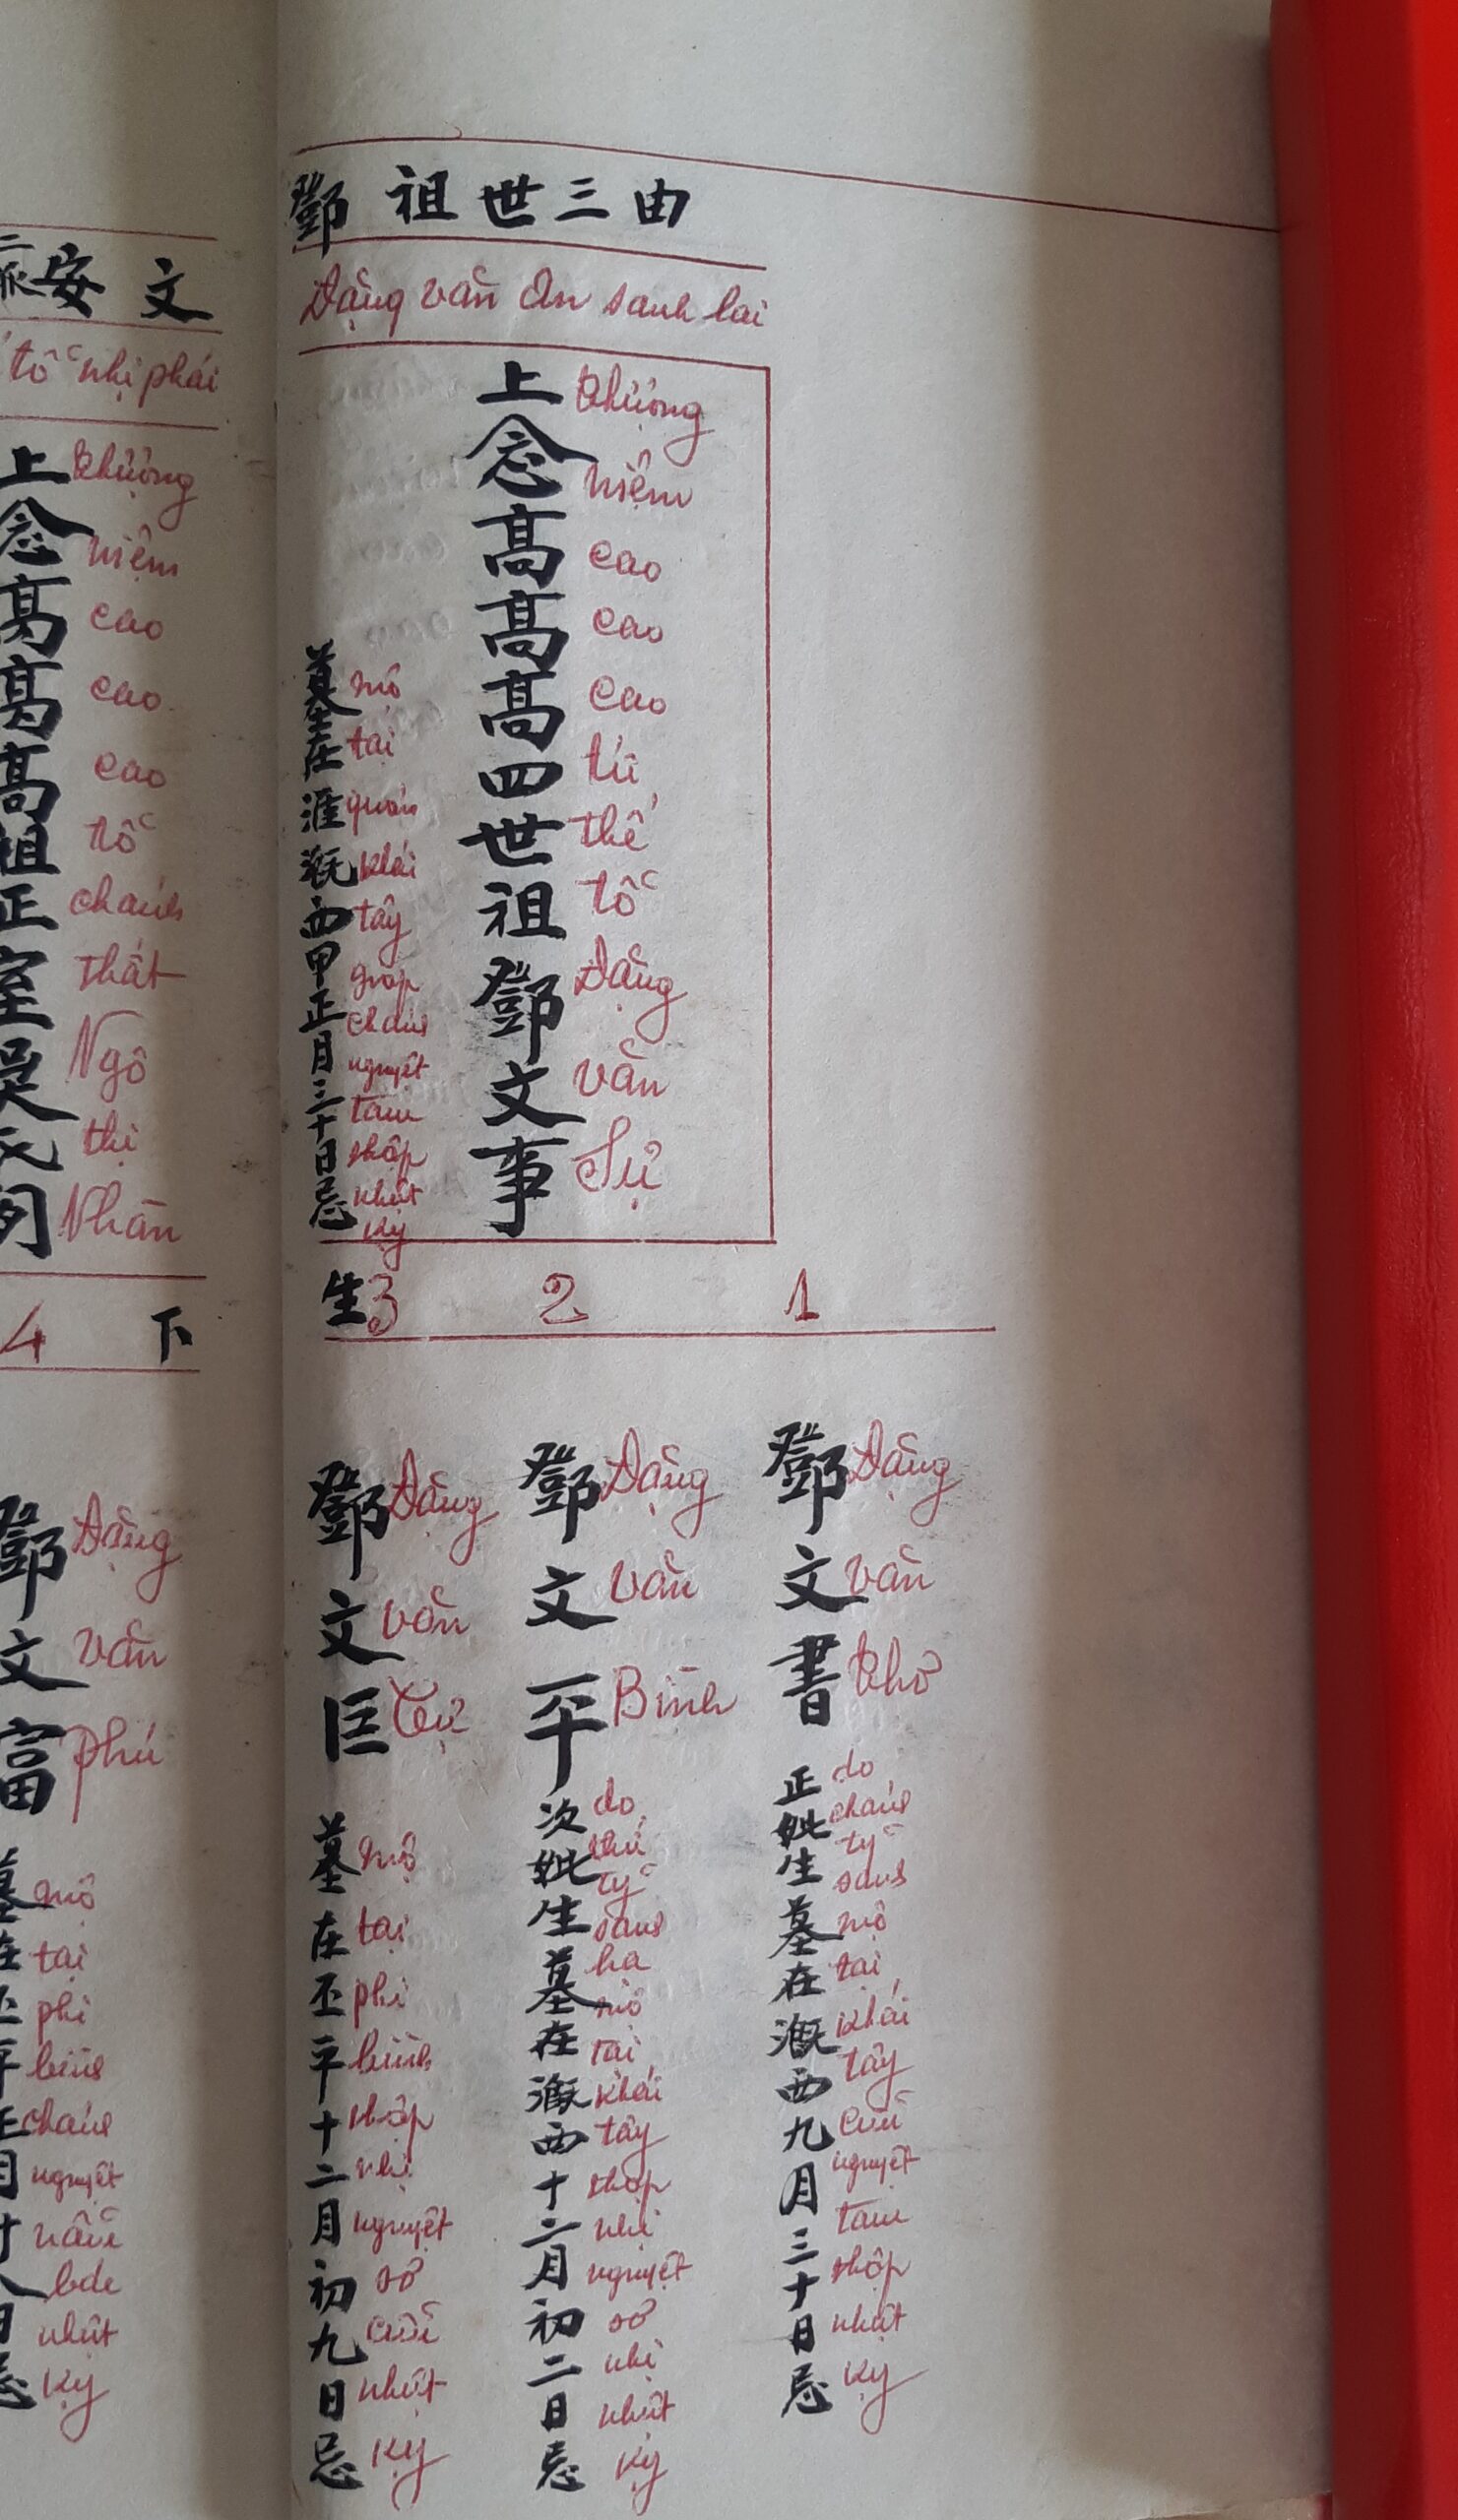 由三世祖鄧
Đặng văn An sanh lai
上念高高高四世祖鄧文事
Thượng niệm cao cao cao tứ thế tổ Đặng văn Sự
墓在涯漑西甲正月三十日忌
mộ tại quán khái tây giáp chánh nguyệt tam thập nhựt kỵ
1
2
生3
鄧文書
Đặng văn Thơ
正妣生墓在漑西九月三十日忌
do chánh tỷ sanh mộ tại khái tây cửu nguyệt tam thập nhựt kỵ
鄧文平
Đặng văn Bình
次妣生墓在漑西十二月初二日忌
do thứ tỷ sanh hạ mộ tại khái tây thập nhị nguyệt sơ nhị nhựt kỵ
鄧文巨
Đặng văn Cự
墓在丕平十二月初九日忌
mộ tại phi bình thập nhị nguyệt sơ cửu nhựt kỵ
文安
tổ nhị phái
上念高高高祖正室吳氏
Thượng niệm cao cao cao tổ chánh thất Ngô thị Nhàn
下
4
鄧文富
Đặng văn phú
墓在丕平正月廿八日忌
mộ tại phi bình chánh nguyệt bát nhựt kỵ